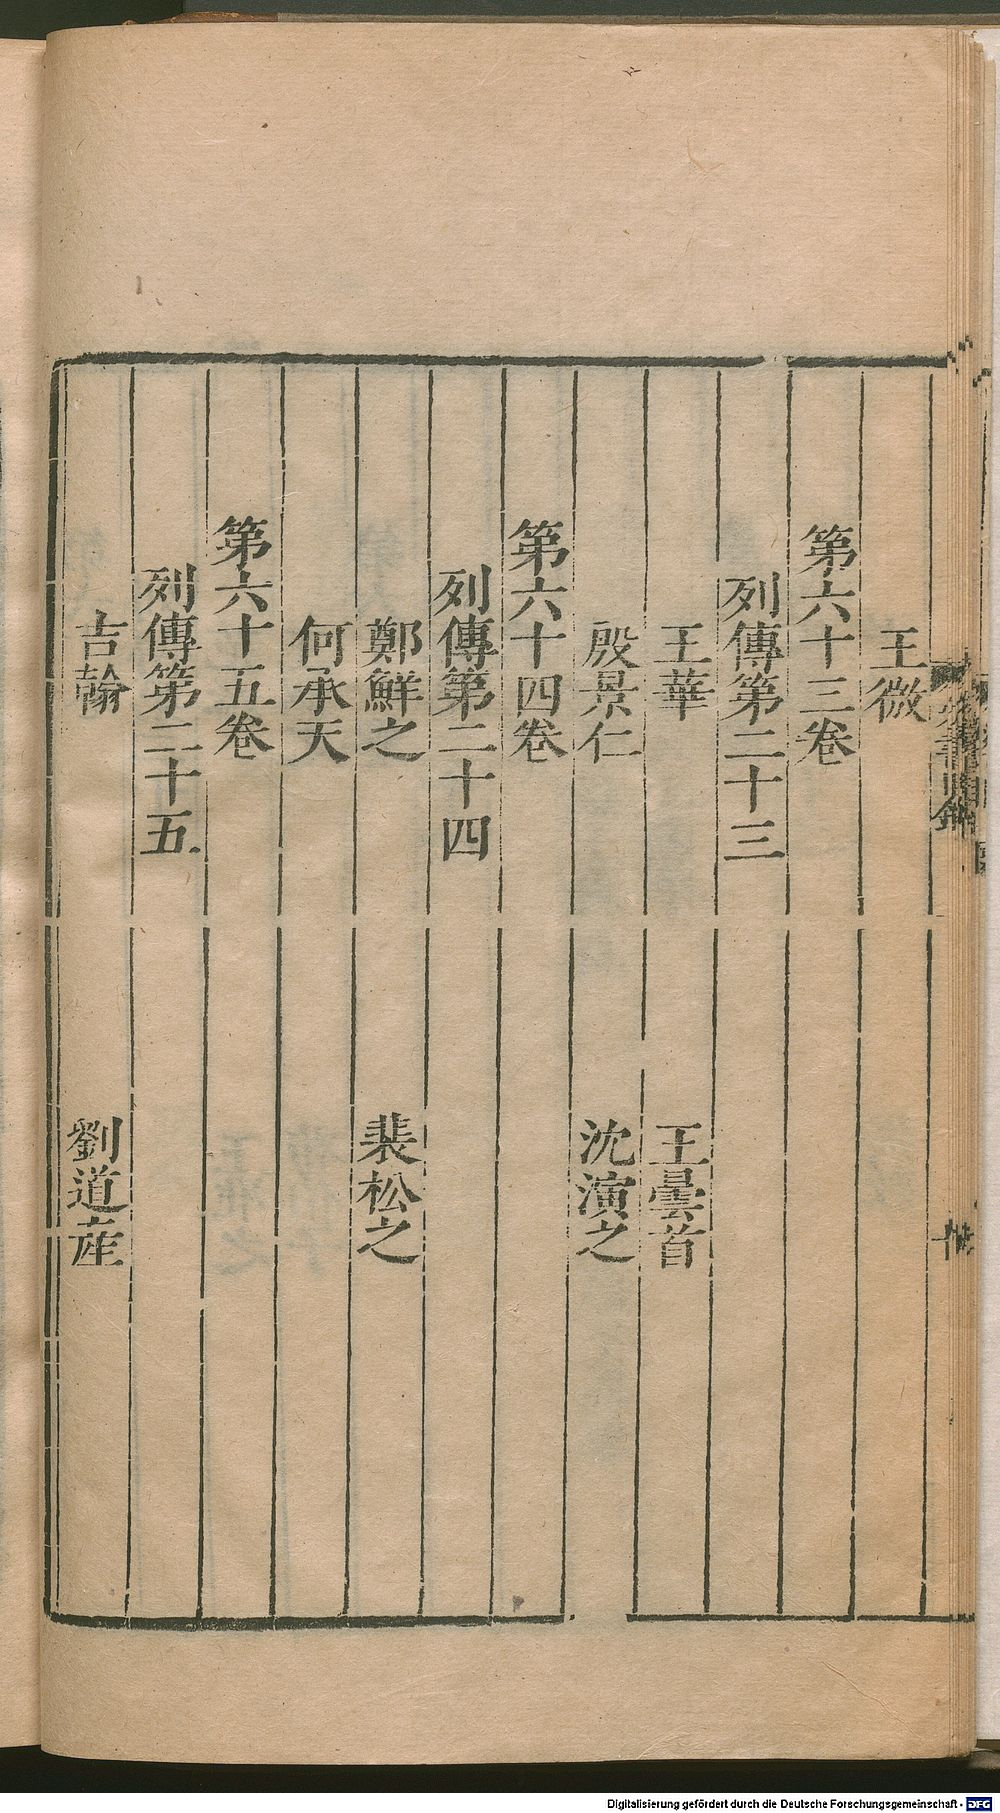 王微
第六十三卷
列傳第二十三
王華 王曇首
殷景仁 沈演之
第六十四卷
列傳第二十四
鄭鮮之 裴松之
何承天
第六十五卷
列傳第二十五
吉翰 劉道產
Digitalisierung gefördert durch die Deutsche Forschungsgemeinschaft - DFG